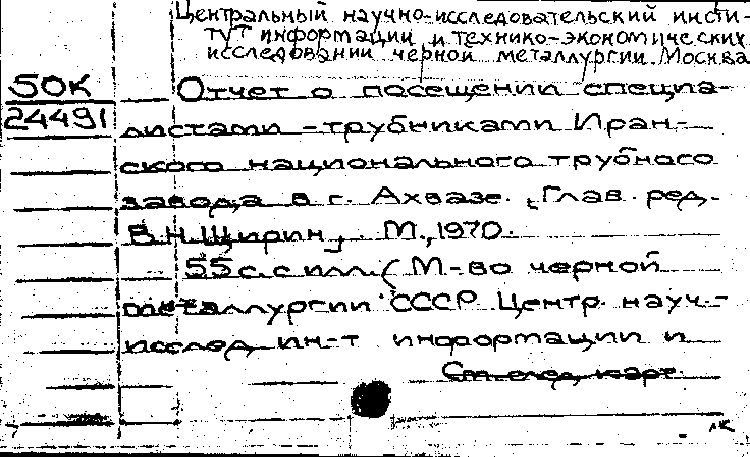 Центральный научно-исследовательский инсти-
тут информации и технико-экономических
исследовании черной металлургии. Москва
50К
24491
Отчет о посещении специа-
листами-трубниками Иран-
ского национального трубного
завода в г. Ахвазе. [Глав. ред.
В.Н. Щирин], М., 1970.
55 с. с илл. (М-во черной
металлургии СССР. Центр. науч.-
исслед. ин-т информации и
См. след. карт.
лк